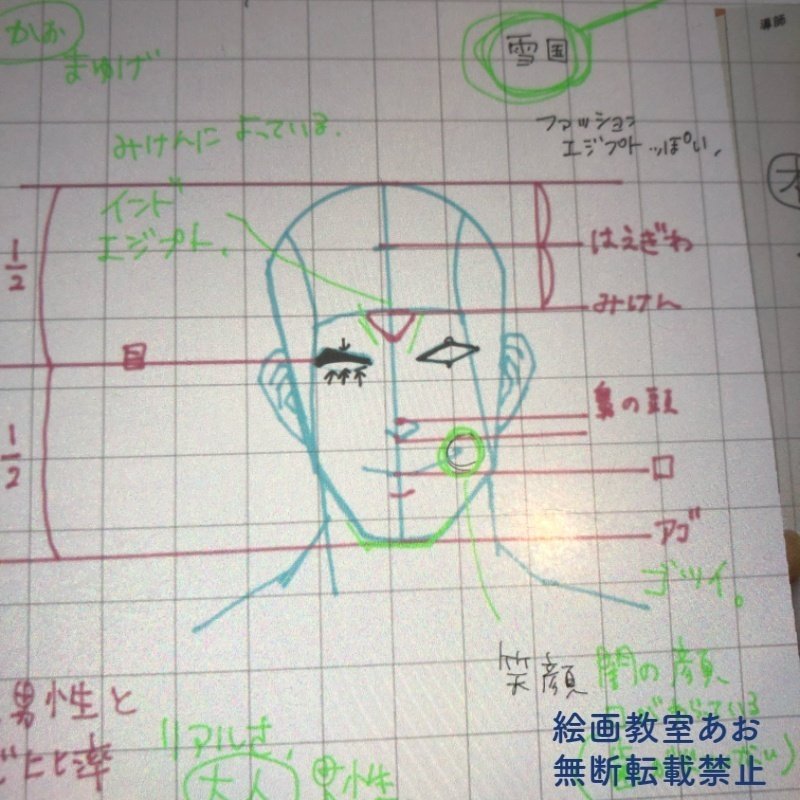 かしお
まゆげ
雪国
導師
みけんに よっている.
ファッション
エジプトっぽい,
インド
エジプト,
1/2
はえぎわ
みけん
目
鼻の頭
1/2
口
アゴ
ゴツイ。
笑顔
闇の顔
男性と
リアルさ,
大人
男性
比率
絵画教室あお
無断転載禁止